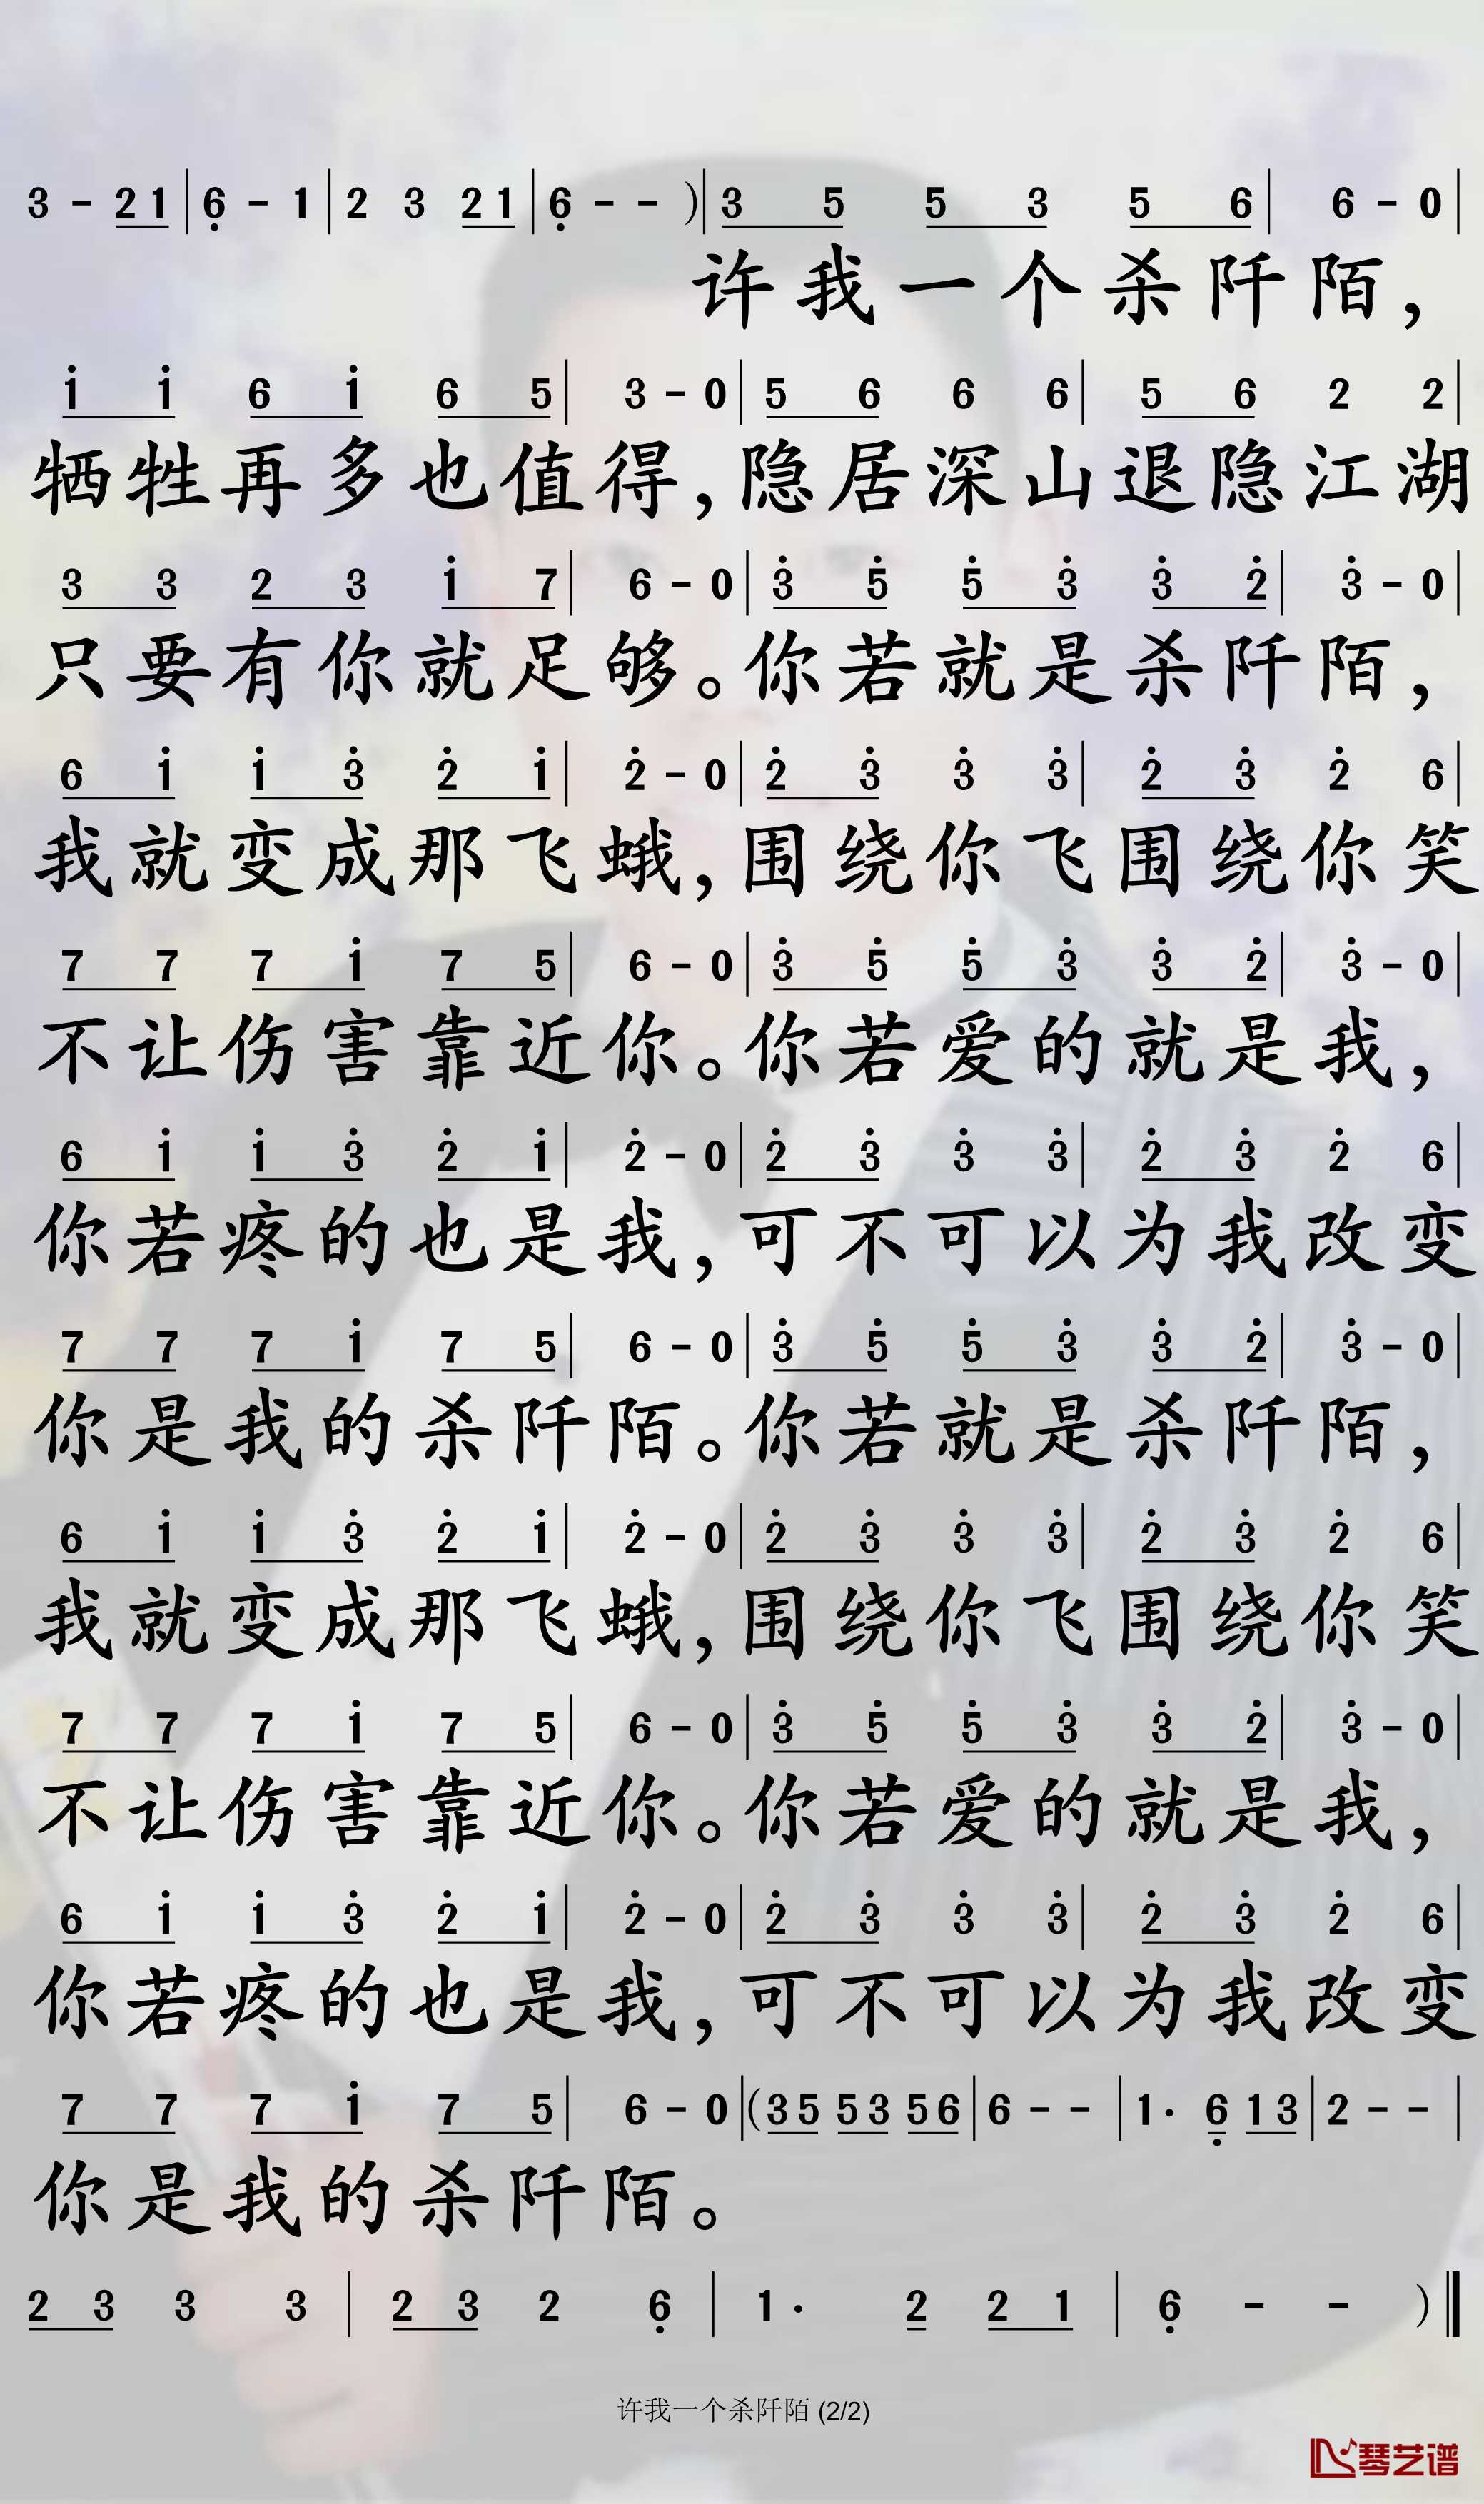 3 - 2 1 | 6̣ - 1 | 2 3 2 1 | 6̣ - - ) | 3 5 5 3 5 6 | 6 - 0 |
许我一个杀阡陌，
1̇ 1̇ 6 1̇ 6 5 | 3 - 0 | 5 6 6 6 | 5 6 2 2 |
牺牲再多也值得，隐居深山退隐江湖
3 3 2 3 1̇ 7 | 6 - 0 | 3̇ 5̇ 5̇ 3̇ 3̇ 2̇ | 3̇ - 0 |
只要有你就足够。你若就是杀阡陌，
6 1̇ 1̇ 3̇ 2̇ 1̇ | 2̇ - 0 | 2̇ 3̇ 3̇ 3̇ | 2̇ 3̇ 2̇ 6 |
我就变成那飞蛾，围绕你飞围绕你笑
7 7 7 1̇ 7 5 | 6 - 0 | 3̇ 5̇ 5̇ 3̇ 3̇ 2̇ | 3̇ - 0 |
不让伤害靠近你。你若爱的就是我，
6 1̇ 1̇ 3̇ 2̇ 1̇ | 2̇ - 0 | 2̇ 3̇ 3̇ 3̇ | 2̇ 3̇ 2̇ 6 |
你若疼的也是我，可不可以为我改变
7 7 7 1̇ 7 5 | 6 - 0 | 3̇ 5̇ 5̇ 3̇ 3̇ 2̇ | 3̇ - 0 |
你是我的杀阡陌。你若就是杀阡陌，
6 1̇ 1̇ 3̇ 2̇ 1̇ | 2̇ - 0 | 2̇ 3̇ 3̇ 3̇ | 2̇ 3̇ 2̇ 6 |
我就变成那飞蛾，围绕你飞围绕你笑
7 7 7 1̇ 7 5 | 6 - 0 | 3̇ 5̇ 5̇ 3̇ 3̇ 2̇ | 3̇ - 0 |
不让伤害靠近你。你若爱的就是我，
6 1̇ 1̇ 3̇ 2̇ 1̇ | 2̇ - 0 | 2̇ 3̇ 3̇ 3̇ | 2̇ 3̇ 2̇ 6 |
你若疼的也是我，可不可以为我改变
7 7 7 1̇ 7 5 | 6 - 0 | ( 3 5 5 3 5 6 | 6 - - | 1 · 6̣ 1 3 | 2 - - |
你是我的杀阡陌。
2 3 3 3 | 2 3 2 6̣ | 1 · 2 2 1 | 6̣ - - ) ‖
许我一个杀阡陌 (2/2)
琴艺谱